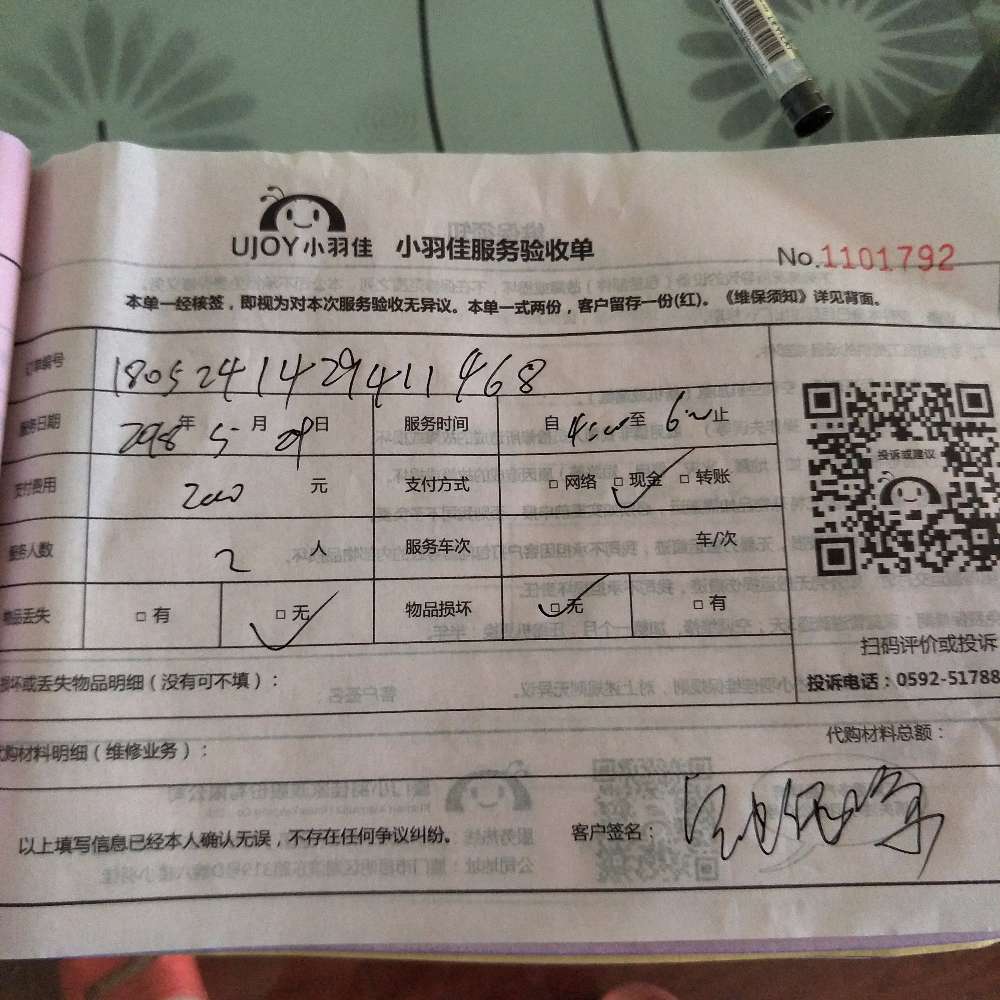 UJOY小羽佳 小羽佳服务验收单
No.1101792
本单一经核签，即视为对本次服务验收无异议。本单一式两份，客户留存一份(红)。《维保须知》详见背面。
订单编号 180524142941468
服务日期 2018年5月29日 服务时间 自4:00至6:00止
支付费用 200元 支付方式 □网络 □现金 □转账
服务人数 2人 服务车次 车/次
物品丢失 □有 □无 物品损坏 □无 □有
投诉或建议
扫码评价或投诉
投诉电话：0592-51788
损坏或丢失物品明细（没有可不填）：
代购材料明细（维修业务）：
代购材料总额：
以上填写信息已经本人确认无误，不存在任何争议纠纷。
客户签名：